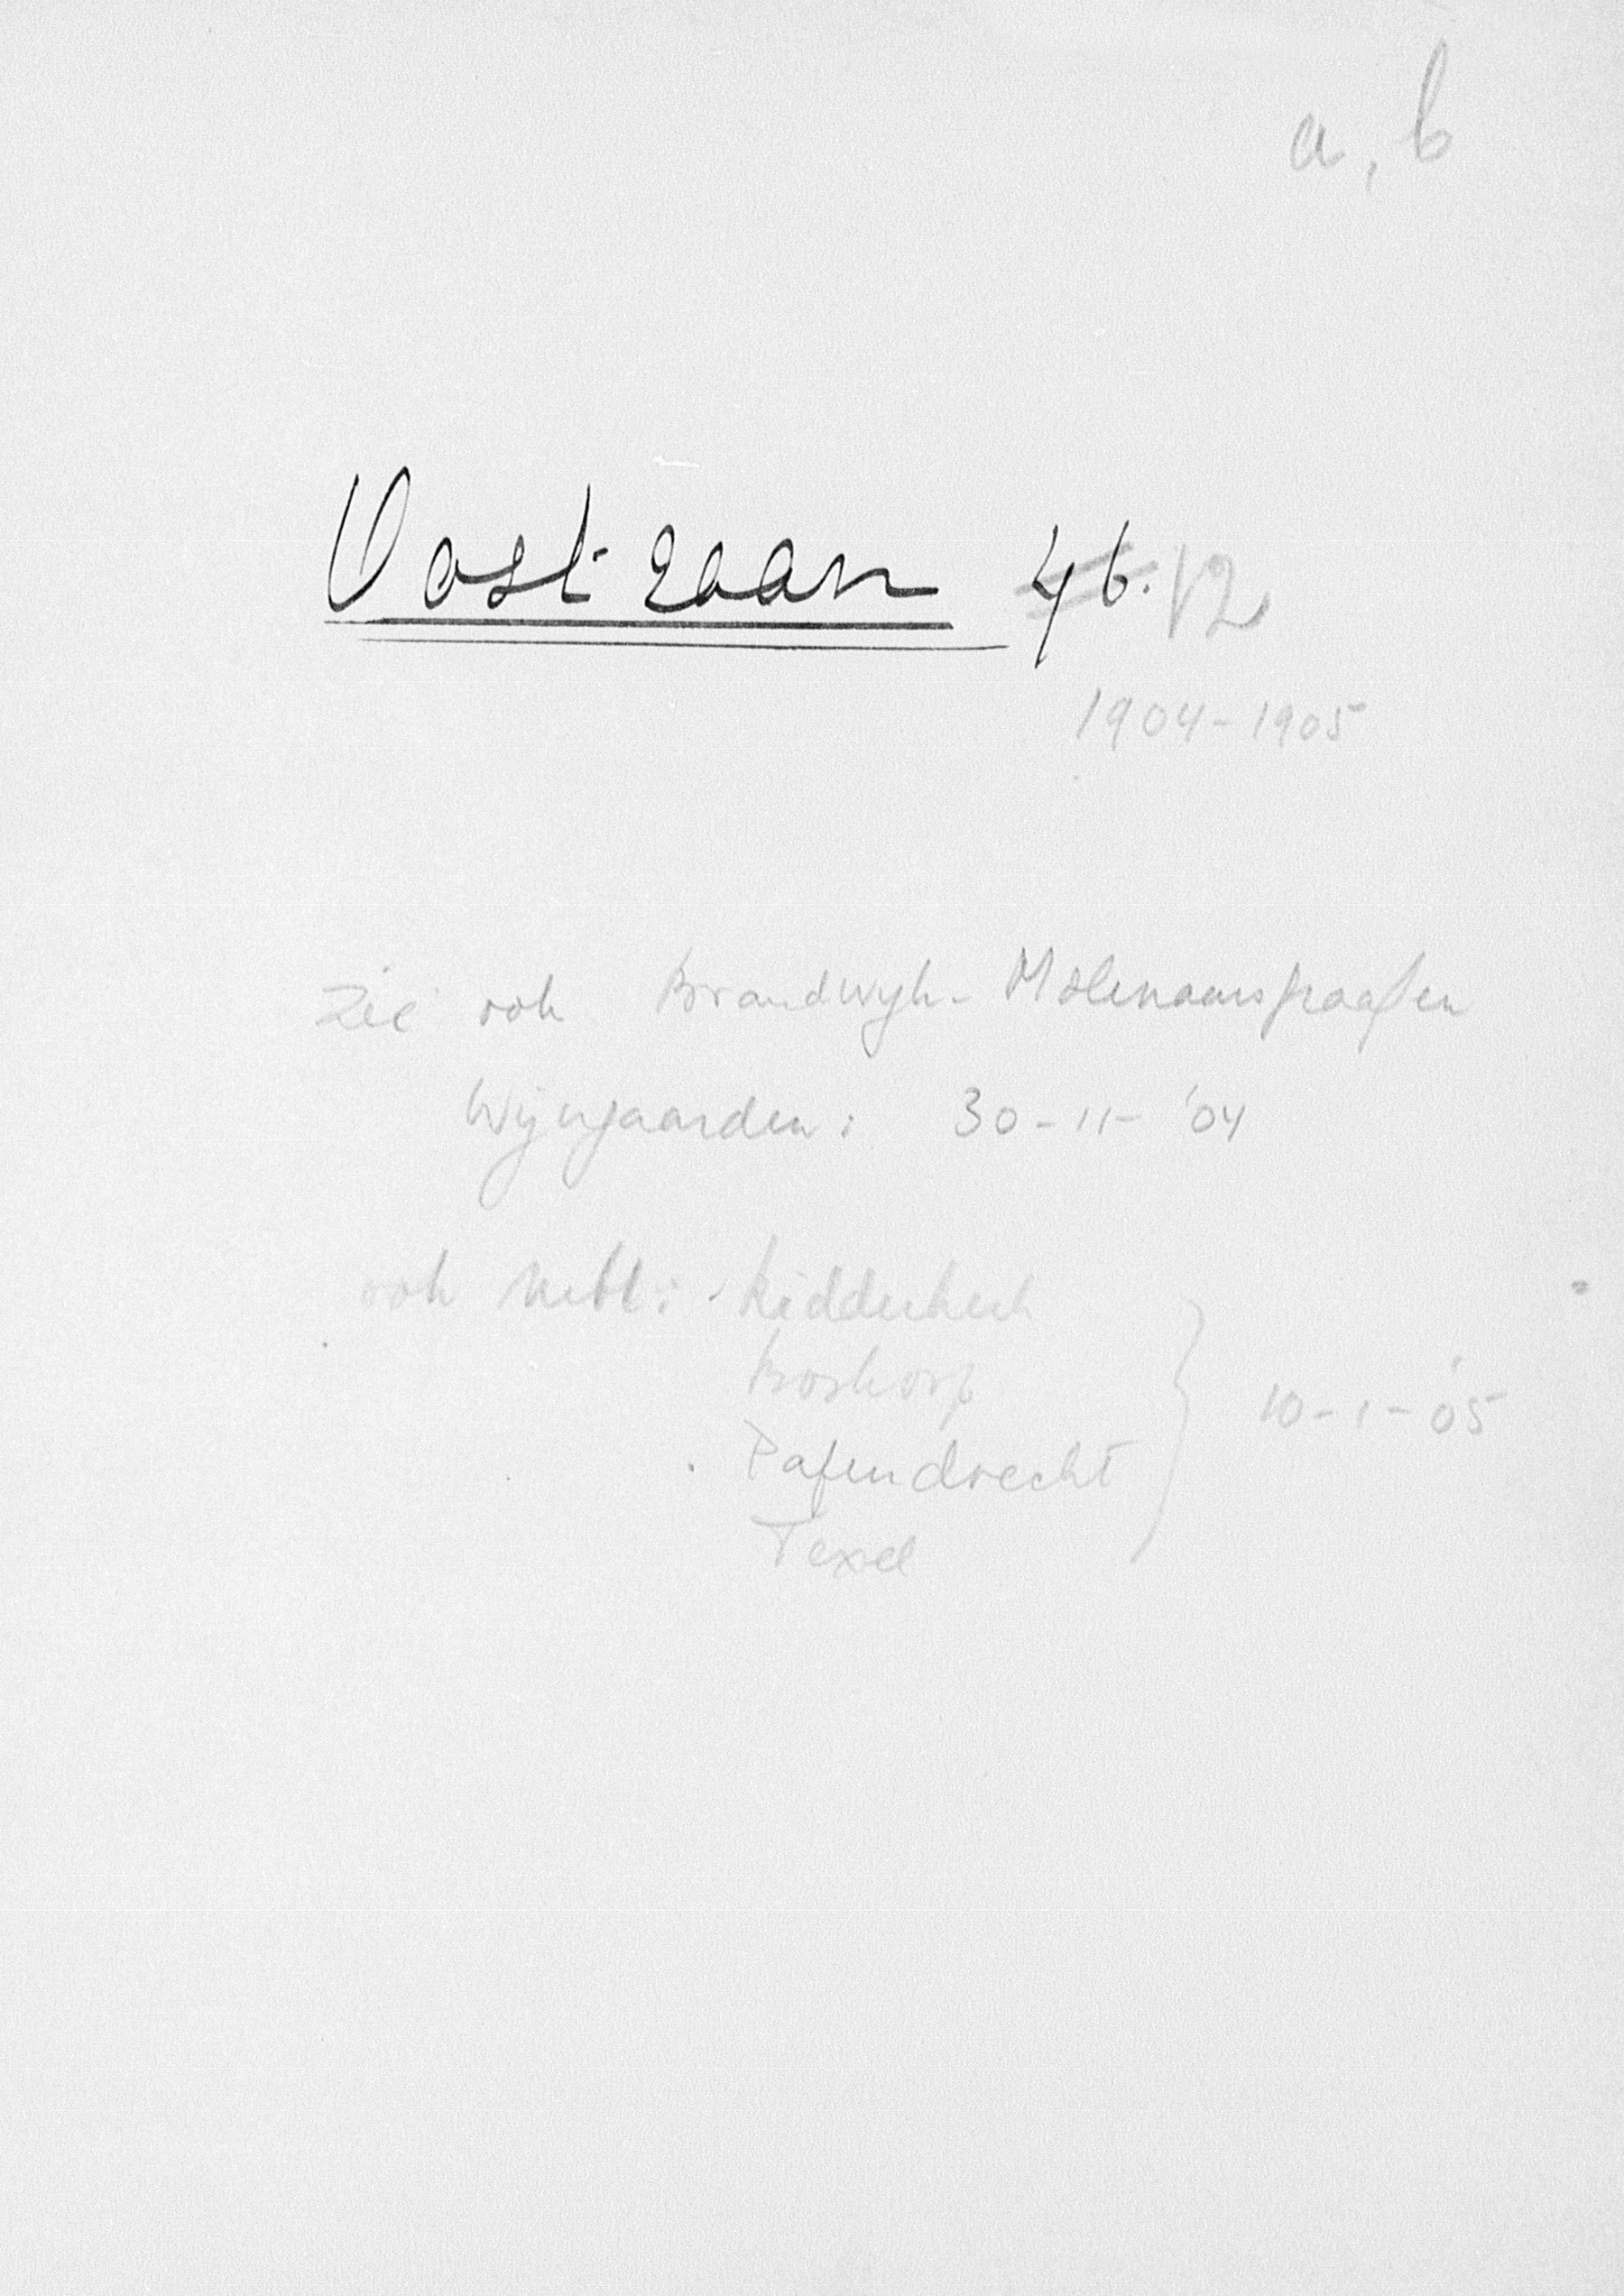 a, b
Oostzaan 46. 12
1904-1905
Zie ook Brandwyk- Molenaarsgraaf en
Wijngaarden: 30-11-'04
ook Ridderkerk
Boskoop
Papendrecht 10-1-'05
Texel